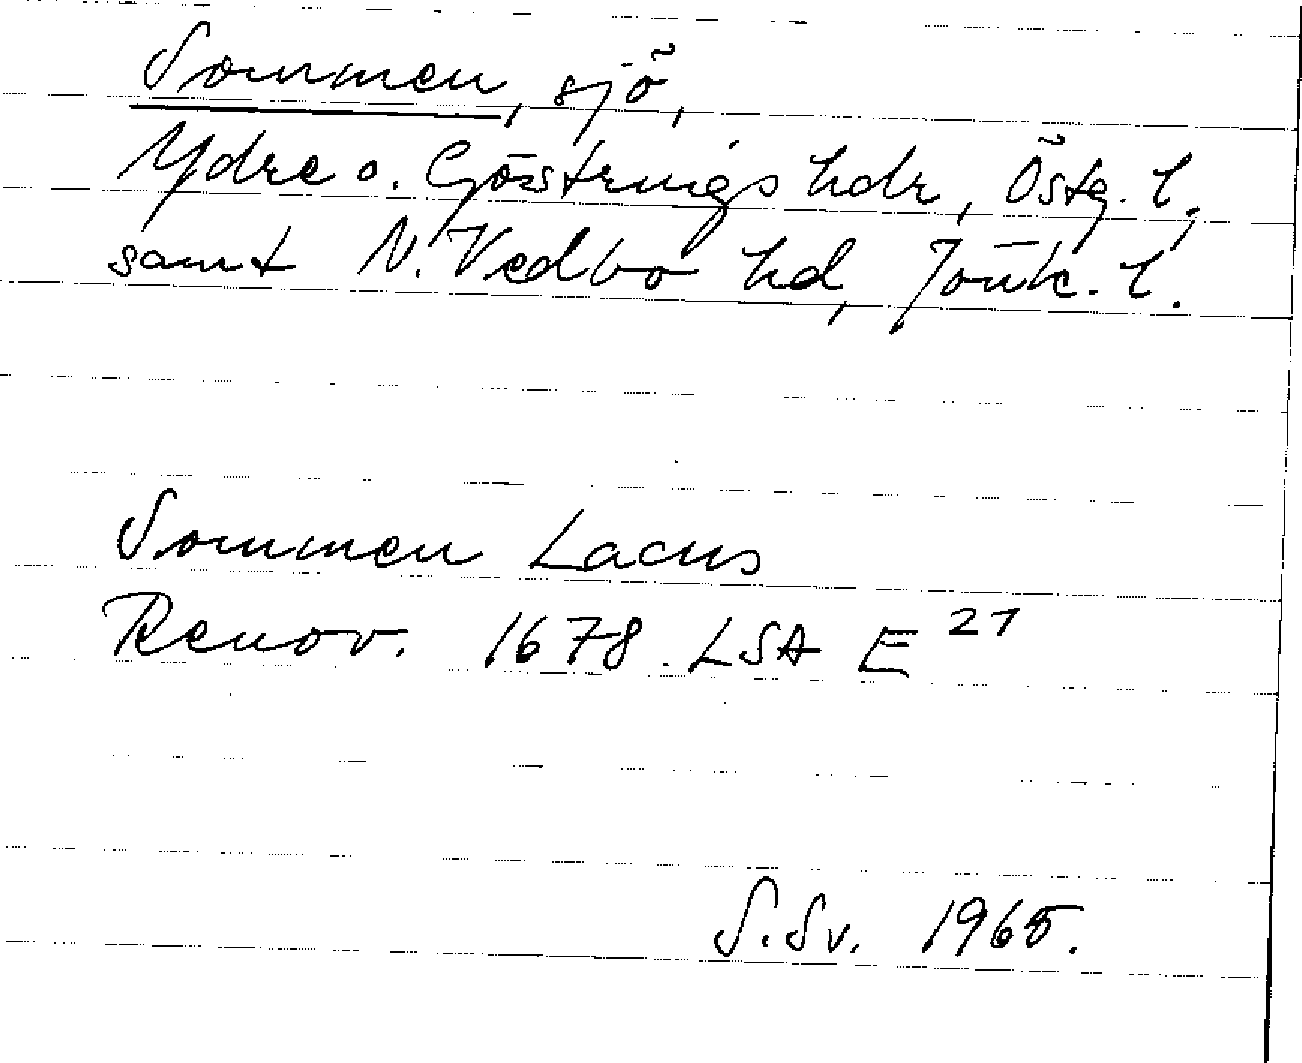 Sommen, sjö,
Ydre o. Göstrings hdr, Östg. l.,
samt N. Vedbo hd, Jönk. l.
Sommen Lacus
Renov. 1678 LSA E 27
S. Sv. 1965.